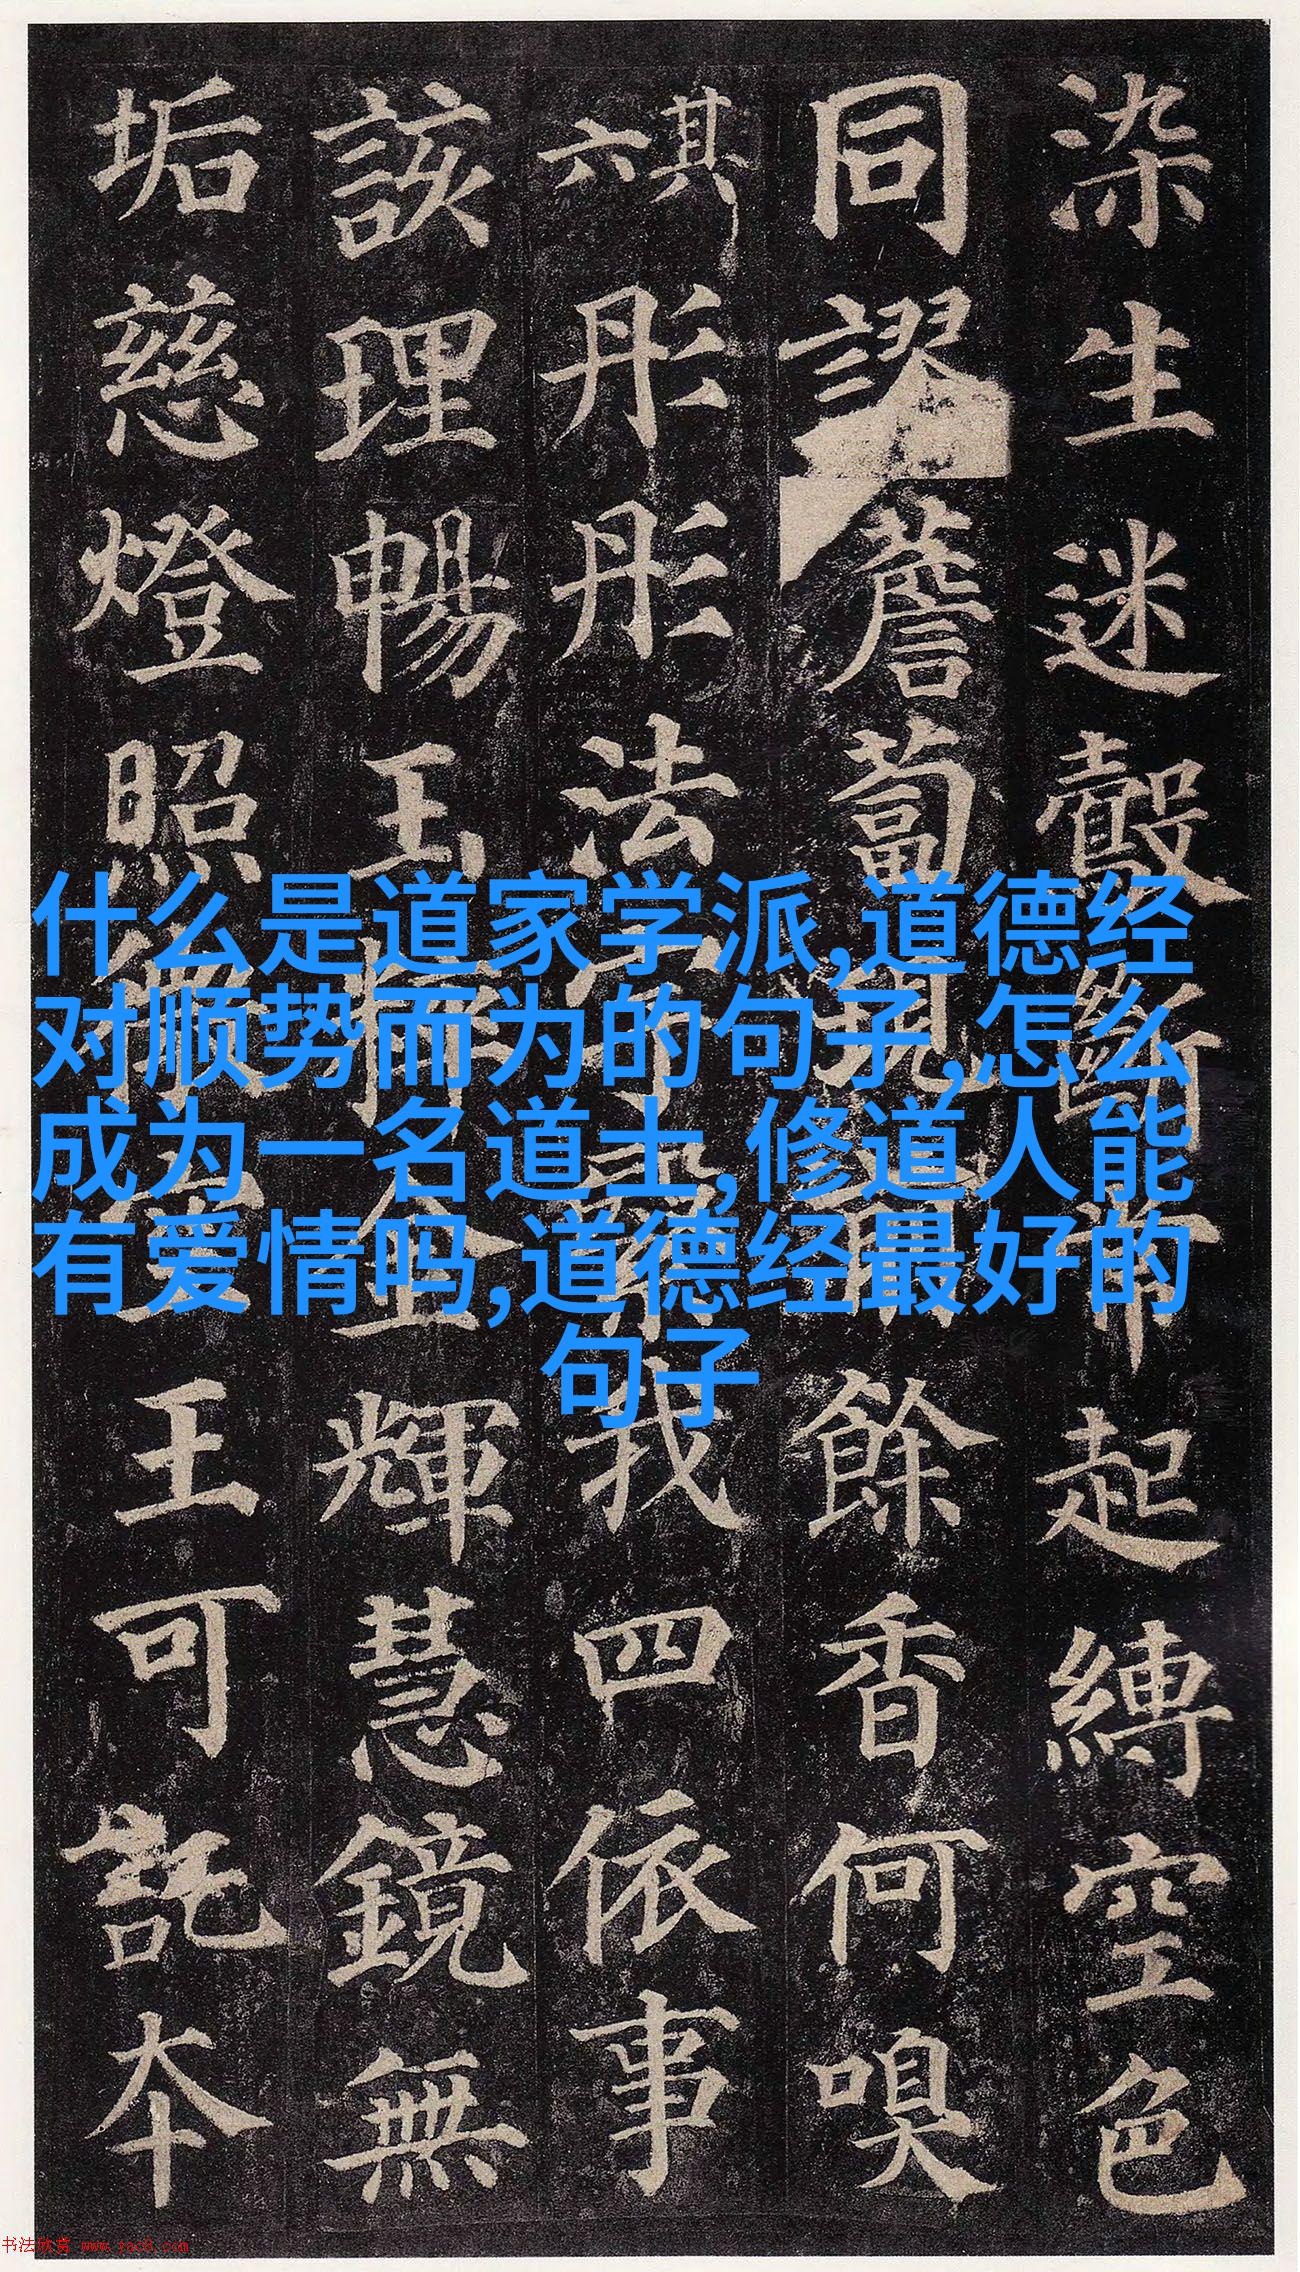 染生迷㲉斷常起縛空色
同謬薝蔔現前餘香何嗅
其六
彤彤法宇繄我四依事
該理暢玉粹金輝慧鏡無
垢慈燈照微空王可託本
什么是道家学派,道德经
对顺势而为的句子,怎么
成为一名道士,修道人能
有爱情吗,道德经最好的
句子
书法欣赏 www.yac8.com